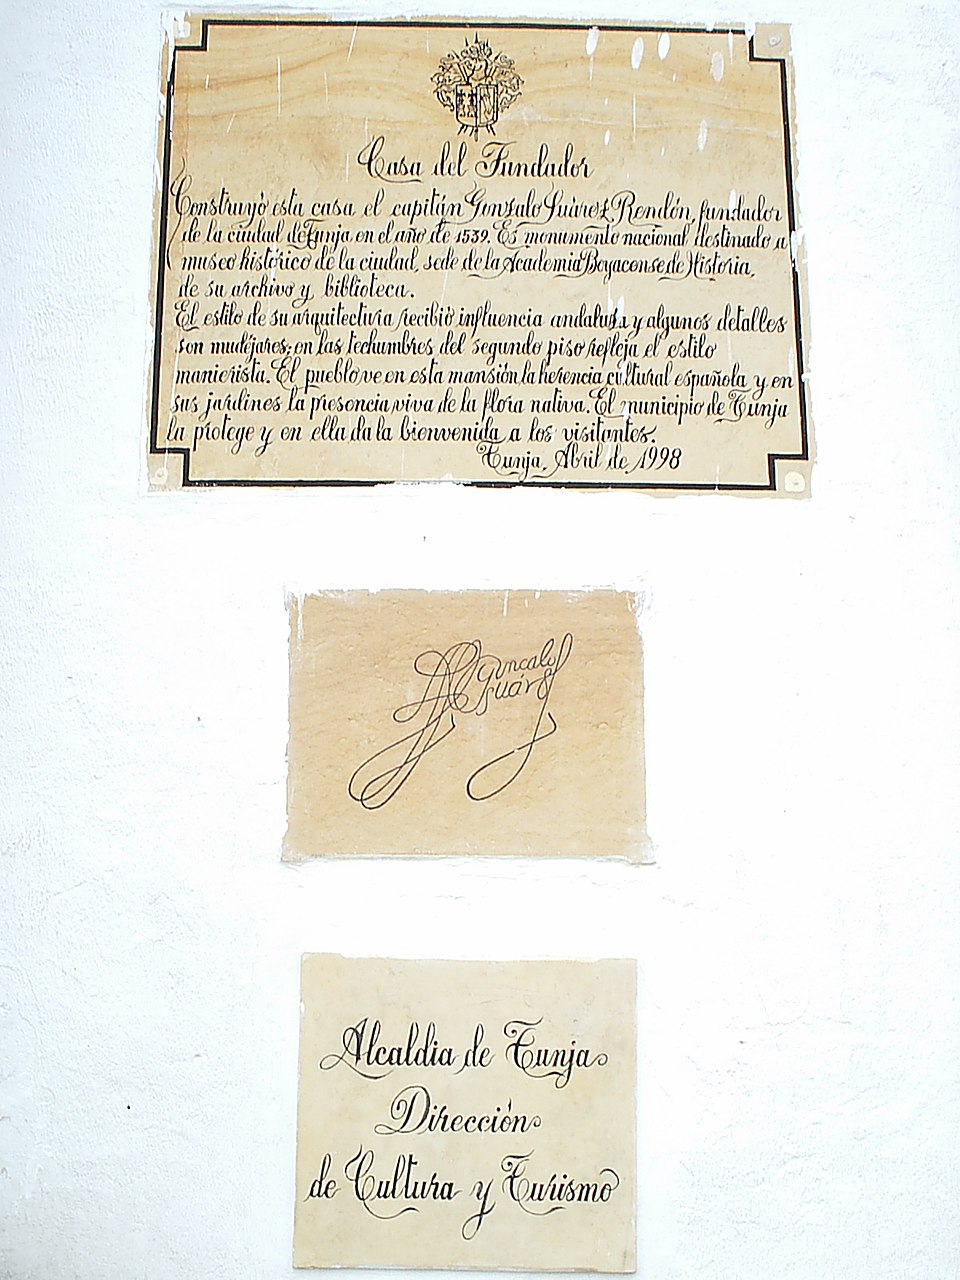 Casa del Fundador
Construyó esta casa el capitán Gonzalo Suárez Rendón, fundador
de la ciudad de Tunja en el año de 1539. Es monumento nacional destinado a
museo histórico de la ciudad, sede de la Academia Boyacense de Historia,
de su archivo y biblioteca.
El estilo de su arquitectura recibió influencia andaluza y algunos detalles
son mudéjares; en las techumbres del segundo piso refleja el estilo
manierista. El pueblo ve en esta mansión la herencia cultural española y en
sus jardines la presencia viva de la flora nativa. El municipio de Tunja
la protege y en ella da la bienvenida a los visitantes.
Tunja, Abril de 1998
Goncalo
Suárez
Alcaldia de Tunja
Dirección
de Cultura y Turismo